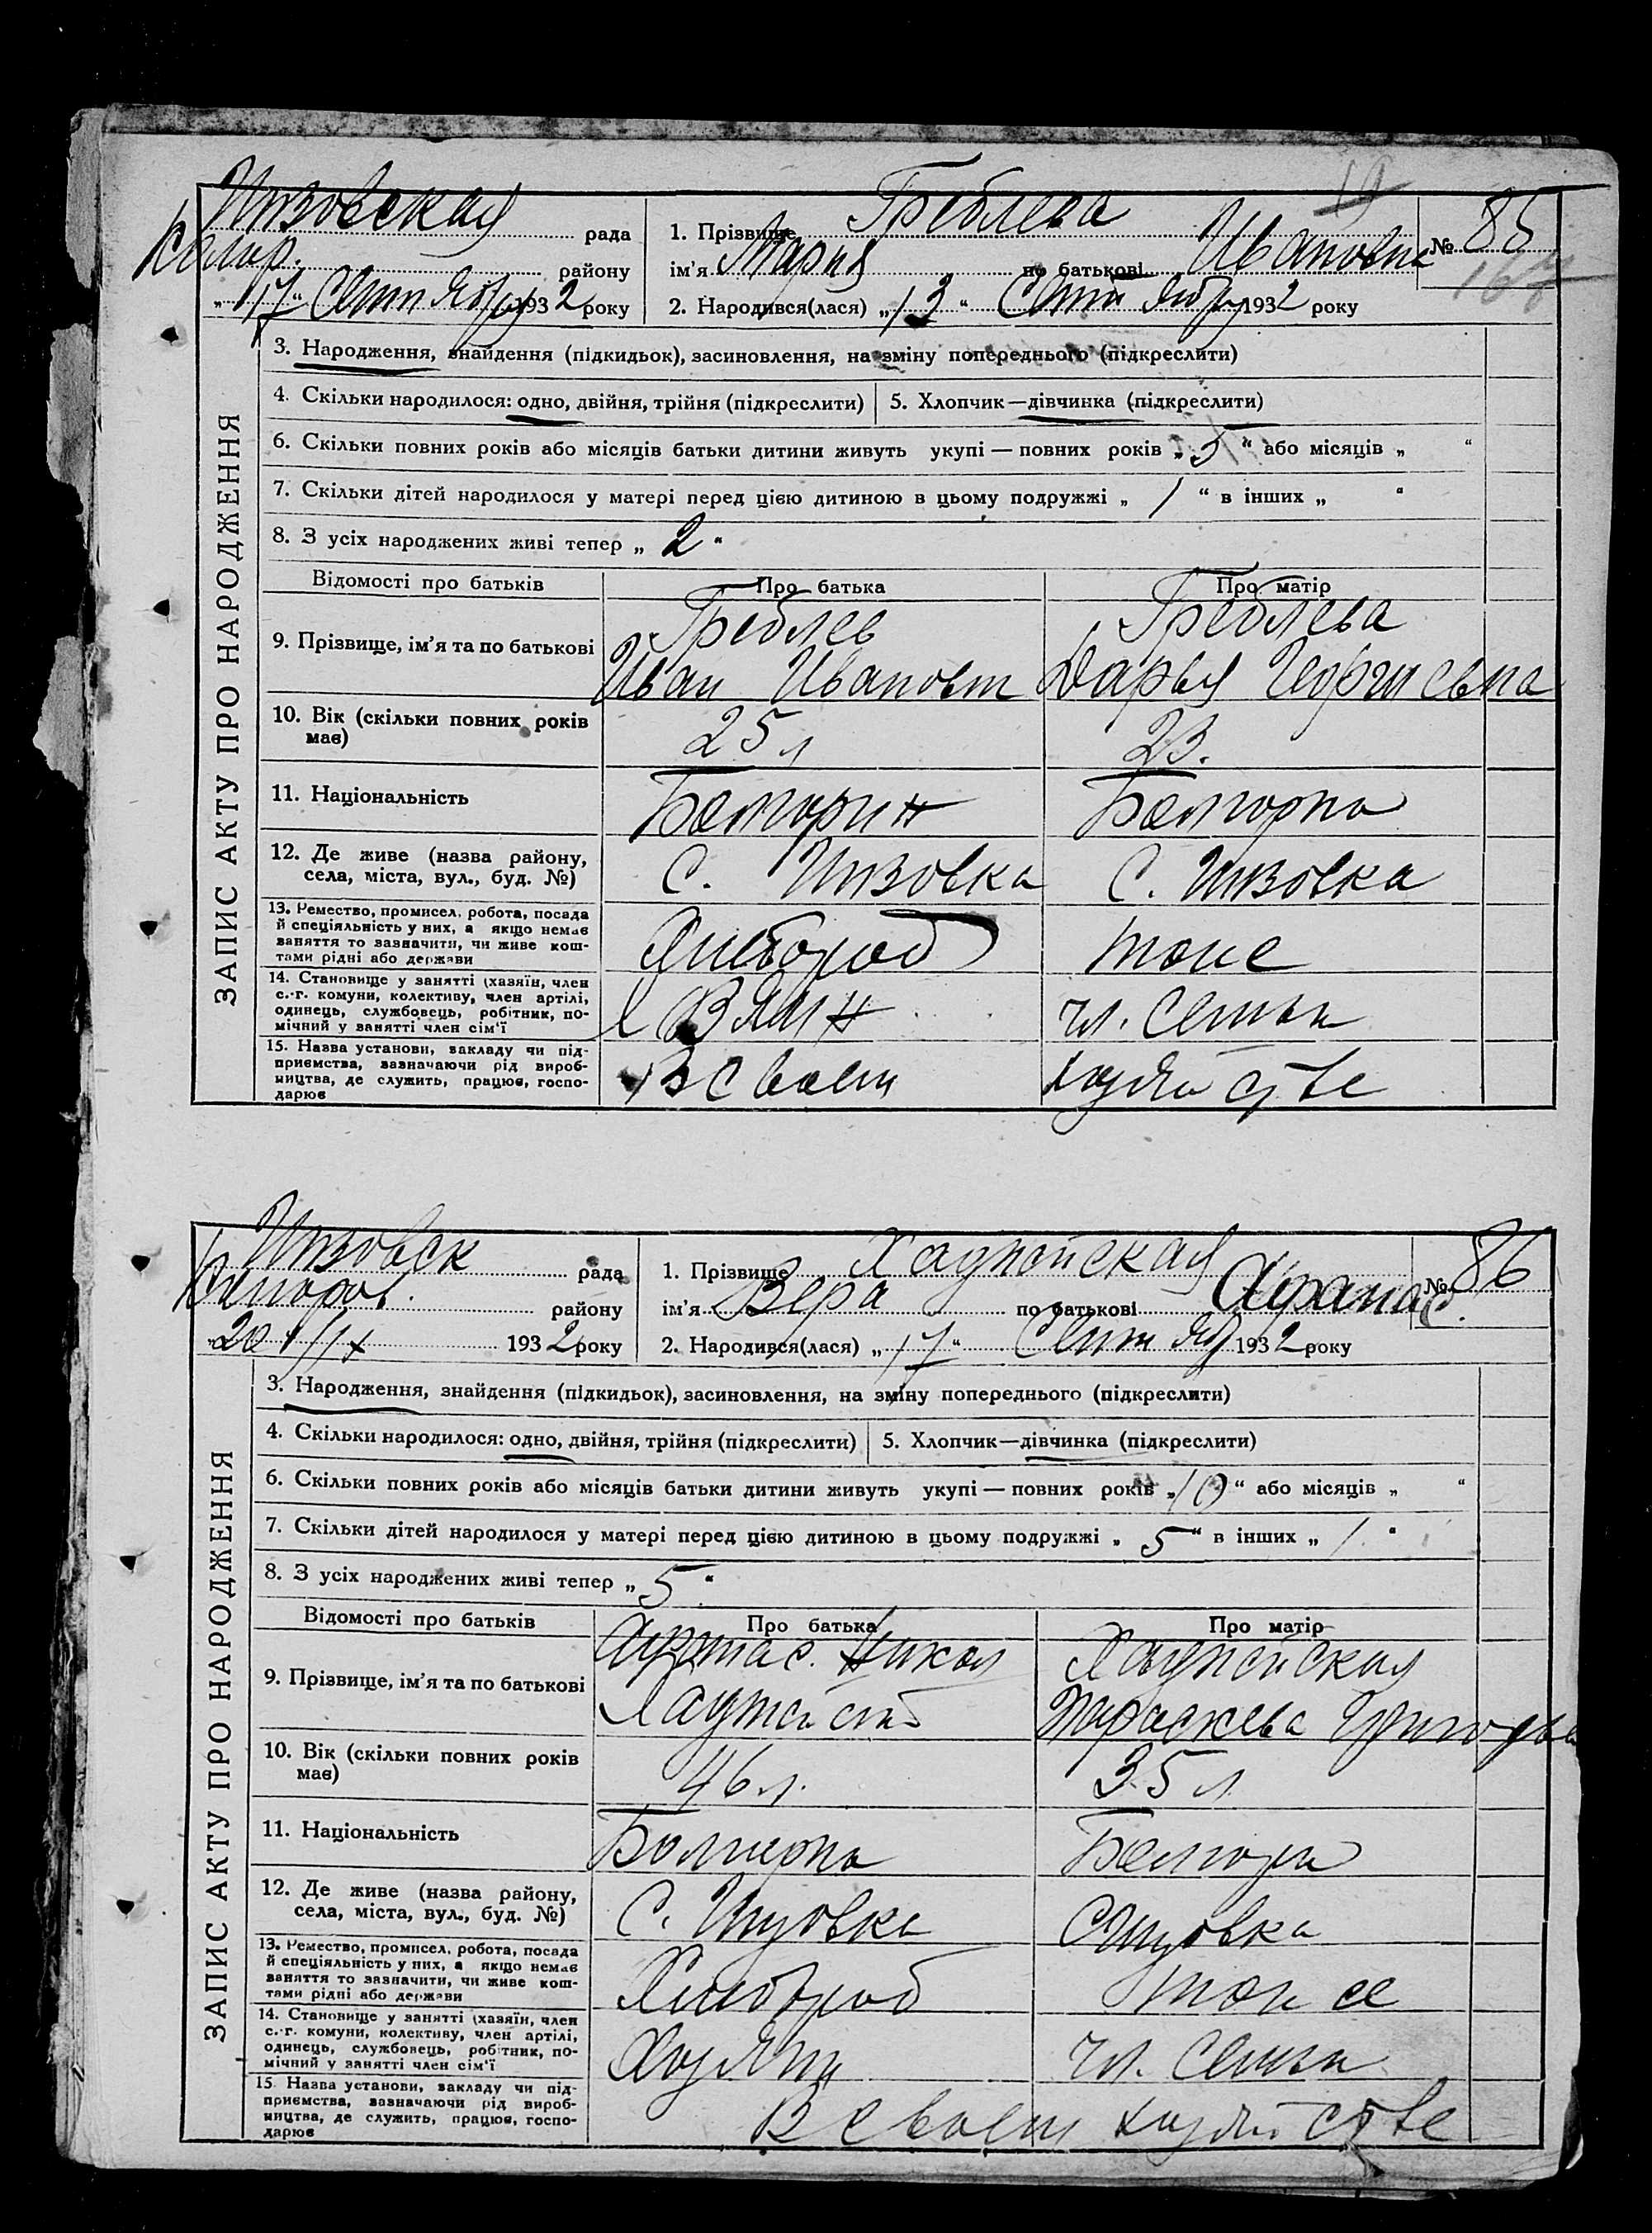 19
рада
Греблева
1. Прізвище
№ 85
району
ім'я Мария по батькові Ивановна
„17“ Сентября 1932 року
2. Народився(лася) „13“ Сентября 1932 року
ЗАПИС АКТУ ПРО НАРОДЖЕННЯ
3. Народження, знайдення (підкидьок), засиновлення, на зміну попереднього (підкреслити)
4. Скільки народилося: одно, двійня, трійня (підкреслити)
5. Хлопчик—дівчинка (підкреслити)
6. Скільки повних років або місяців батьки дитини живуть укупі — повних років „5“ або місяців „ “
7. Скільки дітей народилося у матері перед цією дитиною в цьому подружжі „1“ в інших „ “
8. З усіх народжених живі тепер „2“
Відомості про батьків
Про батька
Про матір
9. Прізвище, ім'я та по батькові
Греблев
Иван
Греблева
Дарья Георгиевна
10. Вік (скільки повних років
має)
25 л
23.
11. Національність
Болгарин
Болгарка
12. Де живе (назва району,
села, міста, вул., буд. №)
с.
с.
13. Ремество, промисел, робота, посада
й спеціяльність у них, а якщо немає
заняття то зазначити, чи живе кош-
тами рідні або держави
Хлебороб
тоже
14. Становище у занятті (хазяїн, член
с.-г. комуни, колективу, член артілі,
одинець, службовець, робітник, по-
мічний у занятті член сім'ї
чл. семьи
15. Назва установи, закладу чи під-
приємства, зазначаючи рід вироб-
ництва, де служить, працює, госпо-
дарює
В своем хозяйстве
рада
1. Прізвище Хаджийская
№ 86
району
ім'я Вера по батькові Афанас.
„20“ IX 1932 року
2. Народився(лася) „17“ Сентяб 1932 року
ЗАПИС АКТУ ПРО НАРОДЖЕННЯ
3. Народження, знайдення (підкидьок), засиновлення, на зміну попереднього (підкреслити)
4. Скільки народилося: одно, двійня, трійня (підкреслити)
5. Хлопчик—дівчинка (підкреслити)
6. Скільки повних років або місяців батьки дитини живуть укупі — повних років „10“ або місяців „ “
7. Скільки дітей народилося у матері перед цією дитиною в цьому подружжі „5“ в інших „1“
8. З усіх народжених живі тепер „5“
Відомості про батьків
Про батька
Про матір
9. Прізвище, ім'я та по батькові
Хаджийская
Параскева
10. Вік (скільки повних років
має)
46 л.
35 л
11. Національність
12. Де живе (назва району,
села, міста, вул., буд. №)
с.
13. Ремество, промисел, робота, посада
й спеціяльність у них, а якщо немає
заняття то зазначити, чи живе кош-
тами рідні або держави
Хлебороб
14. Становище у занятті (хазяїн, член
с.-г. комуни, колективу, член артілі,
одинець, службовець, робітник, по-
мічний у занятті член сім'ї
Хозяин
чл. семьи
15. Назва установи, закладу чи під-
приємства, зазначаючи рід вироб-
ництва, де служить, працює, госпо-
дарює
В своем хозяйстве